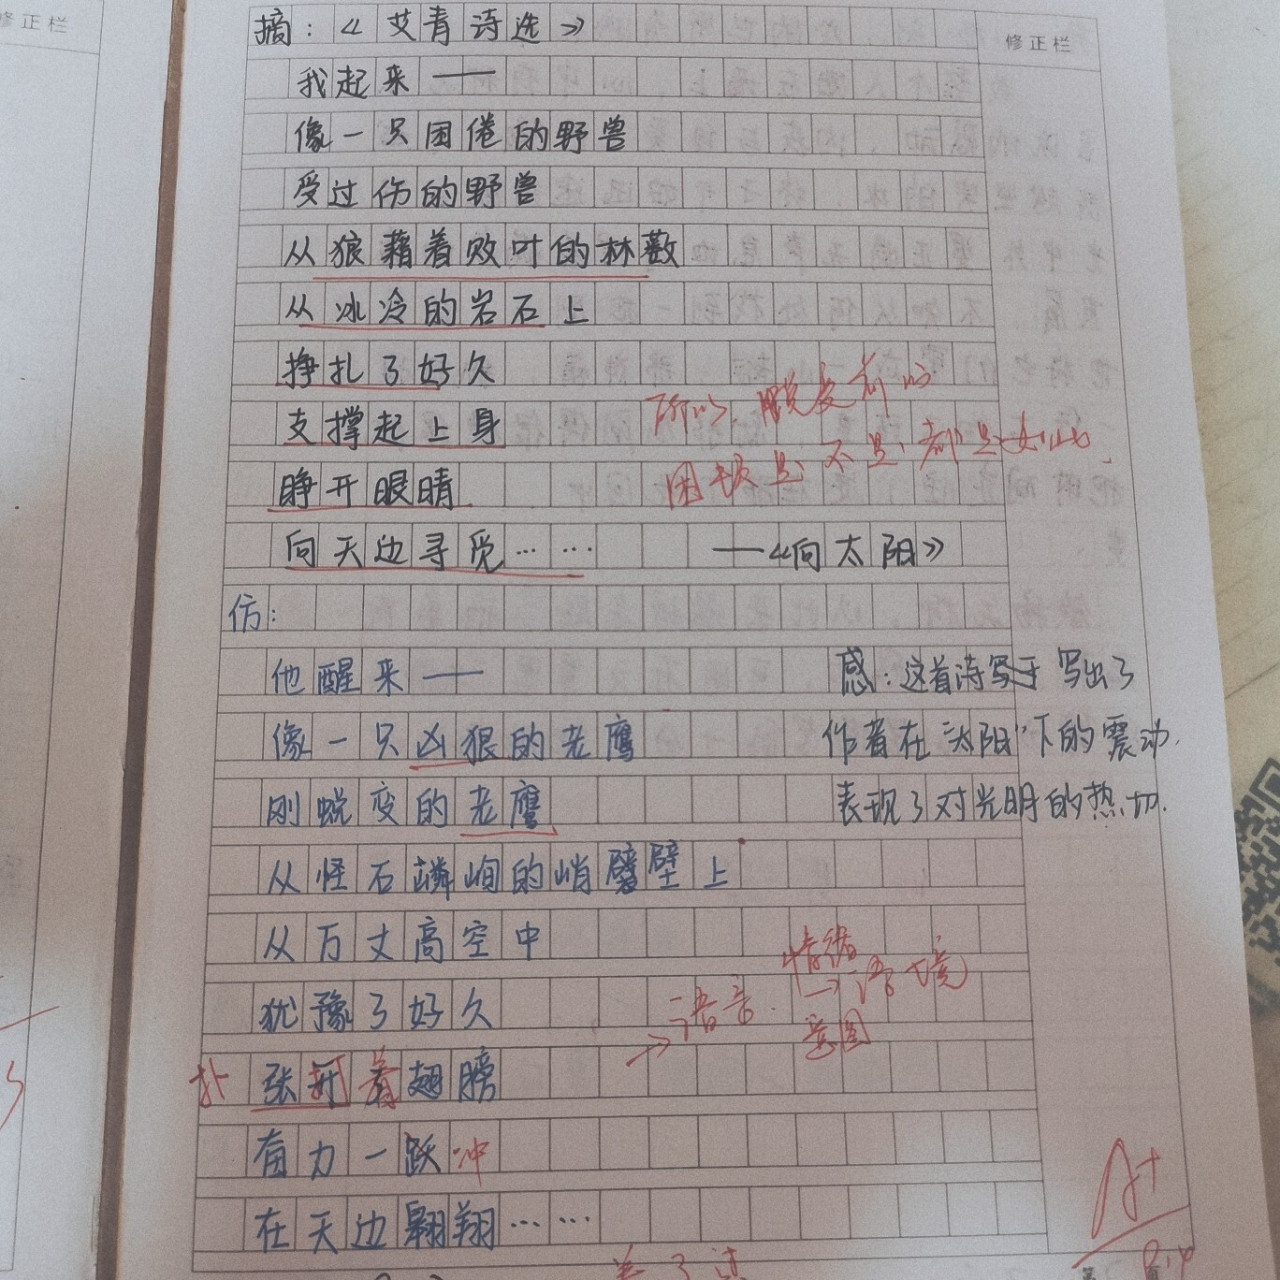 修正栏
修正栏
摘：《艾青诗选》
我起来——
像一只困倦的野兽
受过伤的野兽
从狼藉着败叶的林薮
从冰冷的岩石上
挣扎了好久
支撑起上身
睁开眼睛
向天边寻觅…… ——《向太阳》
所以，脱变前的
困顿是不是都是如此
仿：
他醒来——
像一只凶狠的老鹰
刚蜕变的老鹰
从怪石嶙峋的峭壁上
从万丈高空中
犹豫了好久
扑 张开着翅膀
有力一跃冲
在天边翱翔……
感：这首诗写于写出了
作者在“太阳”下的震动.
表现了对光明的热切.
情绪
→语音. →语境
意图
A+